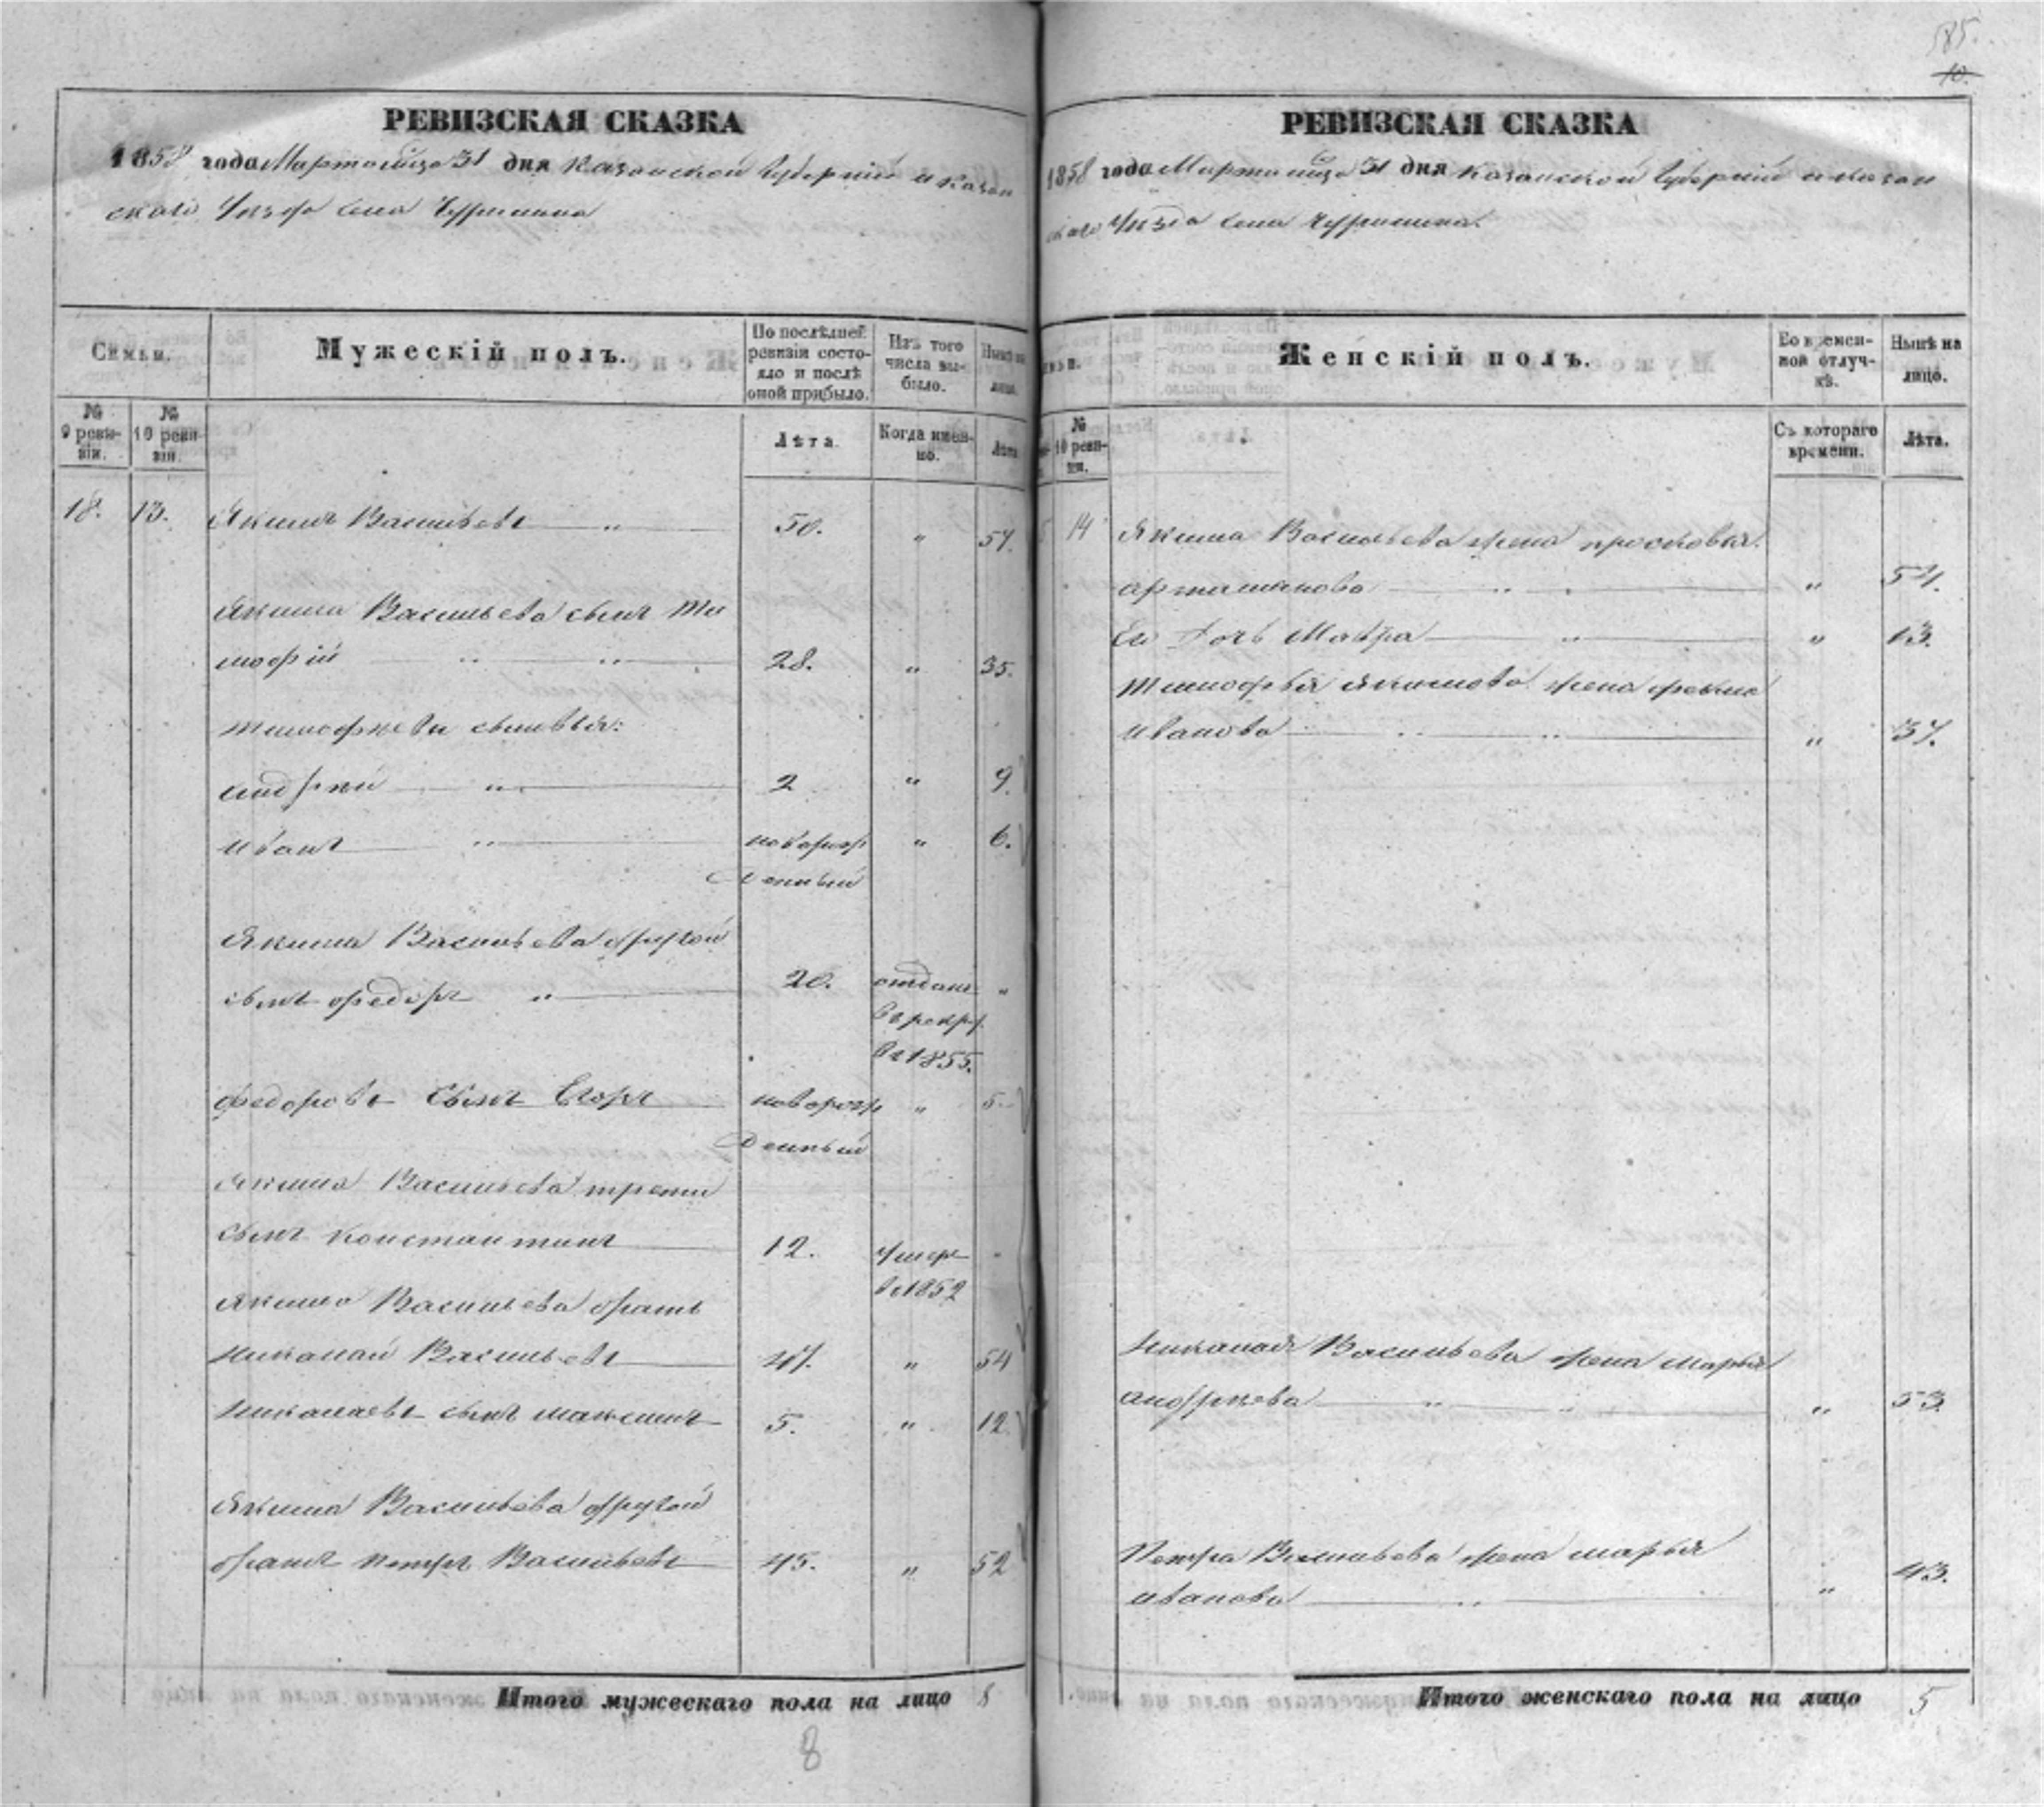 585.
10.
РЕВИЗСКАЯ СКАЗКА
1858 года Марта м-ца 31 дня Казанской Губернiи и Казан
скаго Уезда села
Семьи.
Мужескiй полъ.
По послѣдней ревизiи состояло и послѣ оной прибыло.
Изъ того числа выбыло.
Нынѣ на лицо.
№ 9 ревизiи.
№ 10 ревизiи.
Лѣта.
Когда именно.
Лѣта
18. 13. Якимъ Васильевъ „ 50. „ 57.
Якима Васильева сынъ Ти
мофiй „ „ 28. „ 35.
Тимофеевы сыновья:
Андрей „ 2 „ 9
Иванъ „ новорож „ 6.
денный
Якима Васильева другой
сынъ Федоръ „ 20. отданъ „
въ рекру.
въ 1855.
Федоровъ сынъ Егоръ новорож „ 5.
денный
Якима Васильева трети
сынъ Константинъ 12. умеръ „
въ 1852
Якима Васильева братъ
Николай Васильевъ 47. „ 54
Николаевъ сынъ Максимъ 5. „ 12.
Якима Васильева другой
братъ Петръ Васильевъ 45. „ 52
Итого мужескаго пола на лицо 8
8
РЕВИЗСКАЯ СКАЗКА
1858 года Марта м-ца 31 дня Казанской Губернiи и Казан
скаго Уезда села
Женскiй полъ.
Во временной отлучкѣ.
Нынѣ на лицо.
№ 10 ревизiи.
Съ котораго времени.
Лѣта.
14 Якима Васильева жена Прасковья
Артамонова „ „ „ 54.
Его дочь Мавра „ „ 13.
Тимофея Якимова жена Фекла
Иванова „ „ „ 37.
Николая Васильева жена Марья
Андреева „ „ „ 53.
Петра Васильева жена Марья
Иванова „ „ 43.
Итого женскаго пола на лицо 5